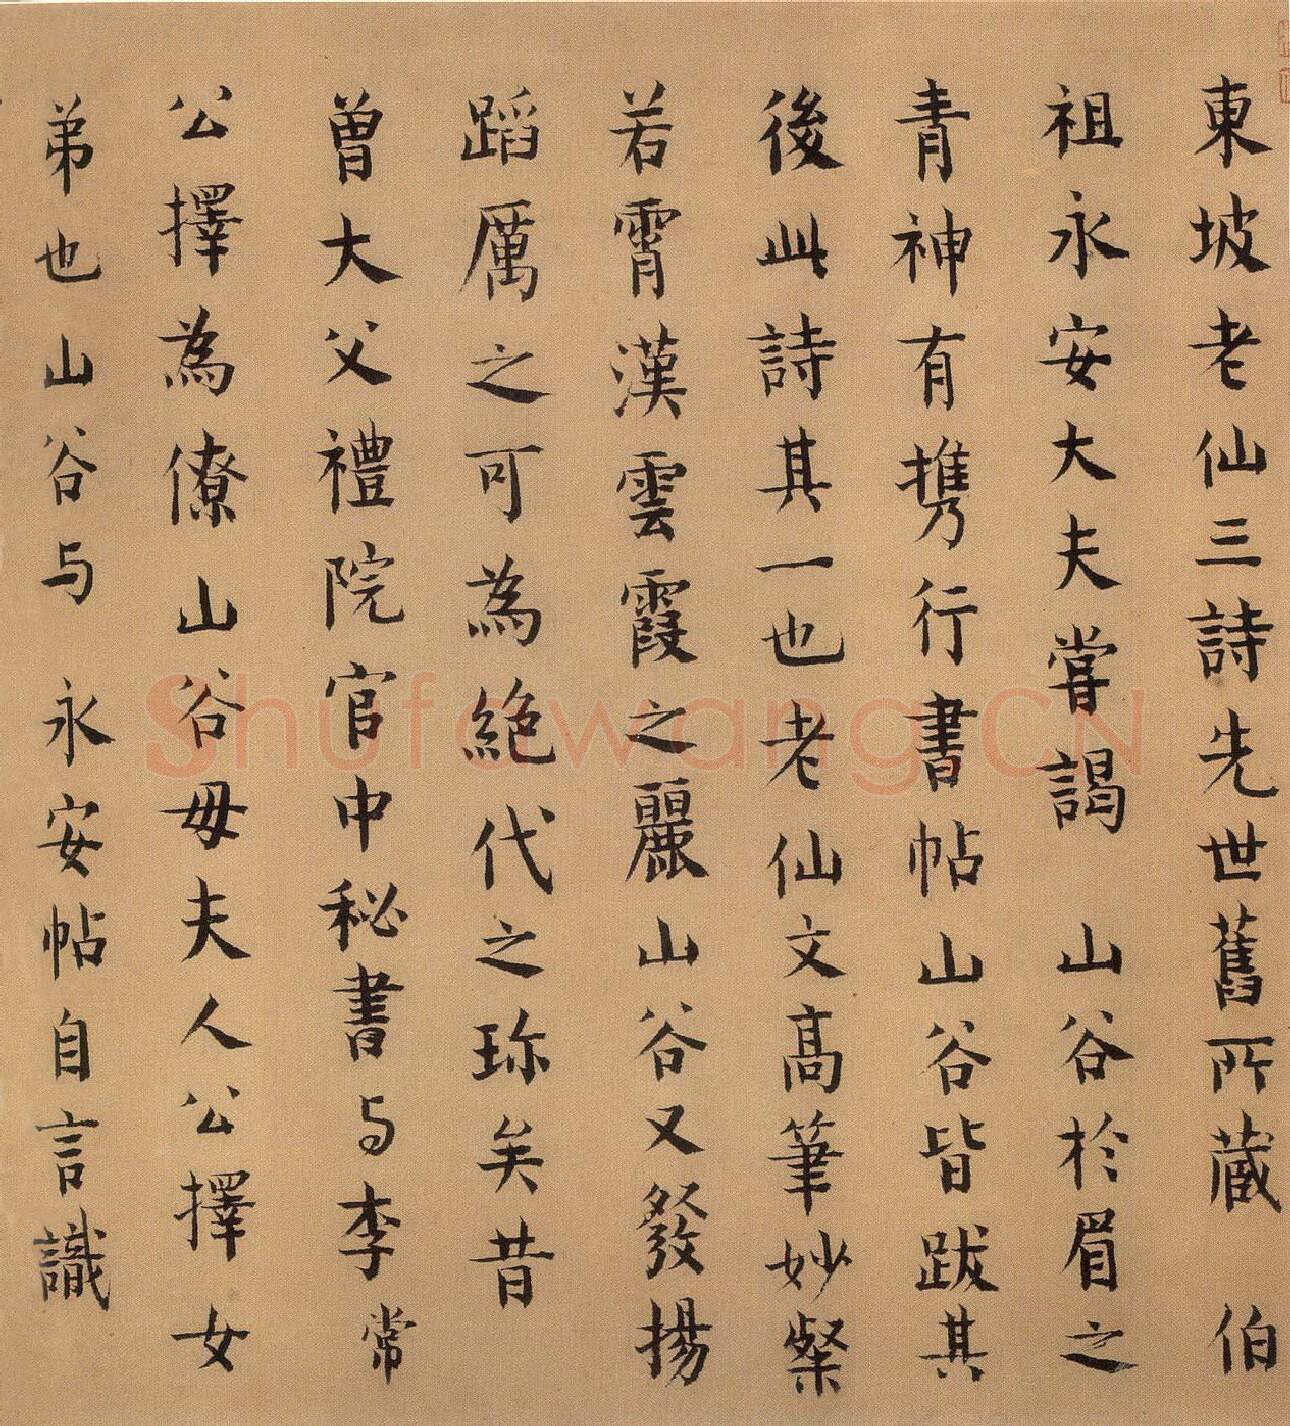 東坡老仙三詩先世舊所藏伯
祖永安大夫嘗謁山谷於眉之
青神有攜行書帖山谷皆跋其
後此詩其一也老仙文高筆妙粲
若霄漢雲霞之麗山谷又發揚
蹈厲之可為絕代之珎矣昔
曾大父禮院官中秘書与李常
公擇為僚山谷母夫人公擇女
弟也山谷与永安帖自言識
Shufawang.CN